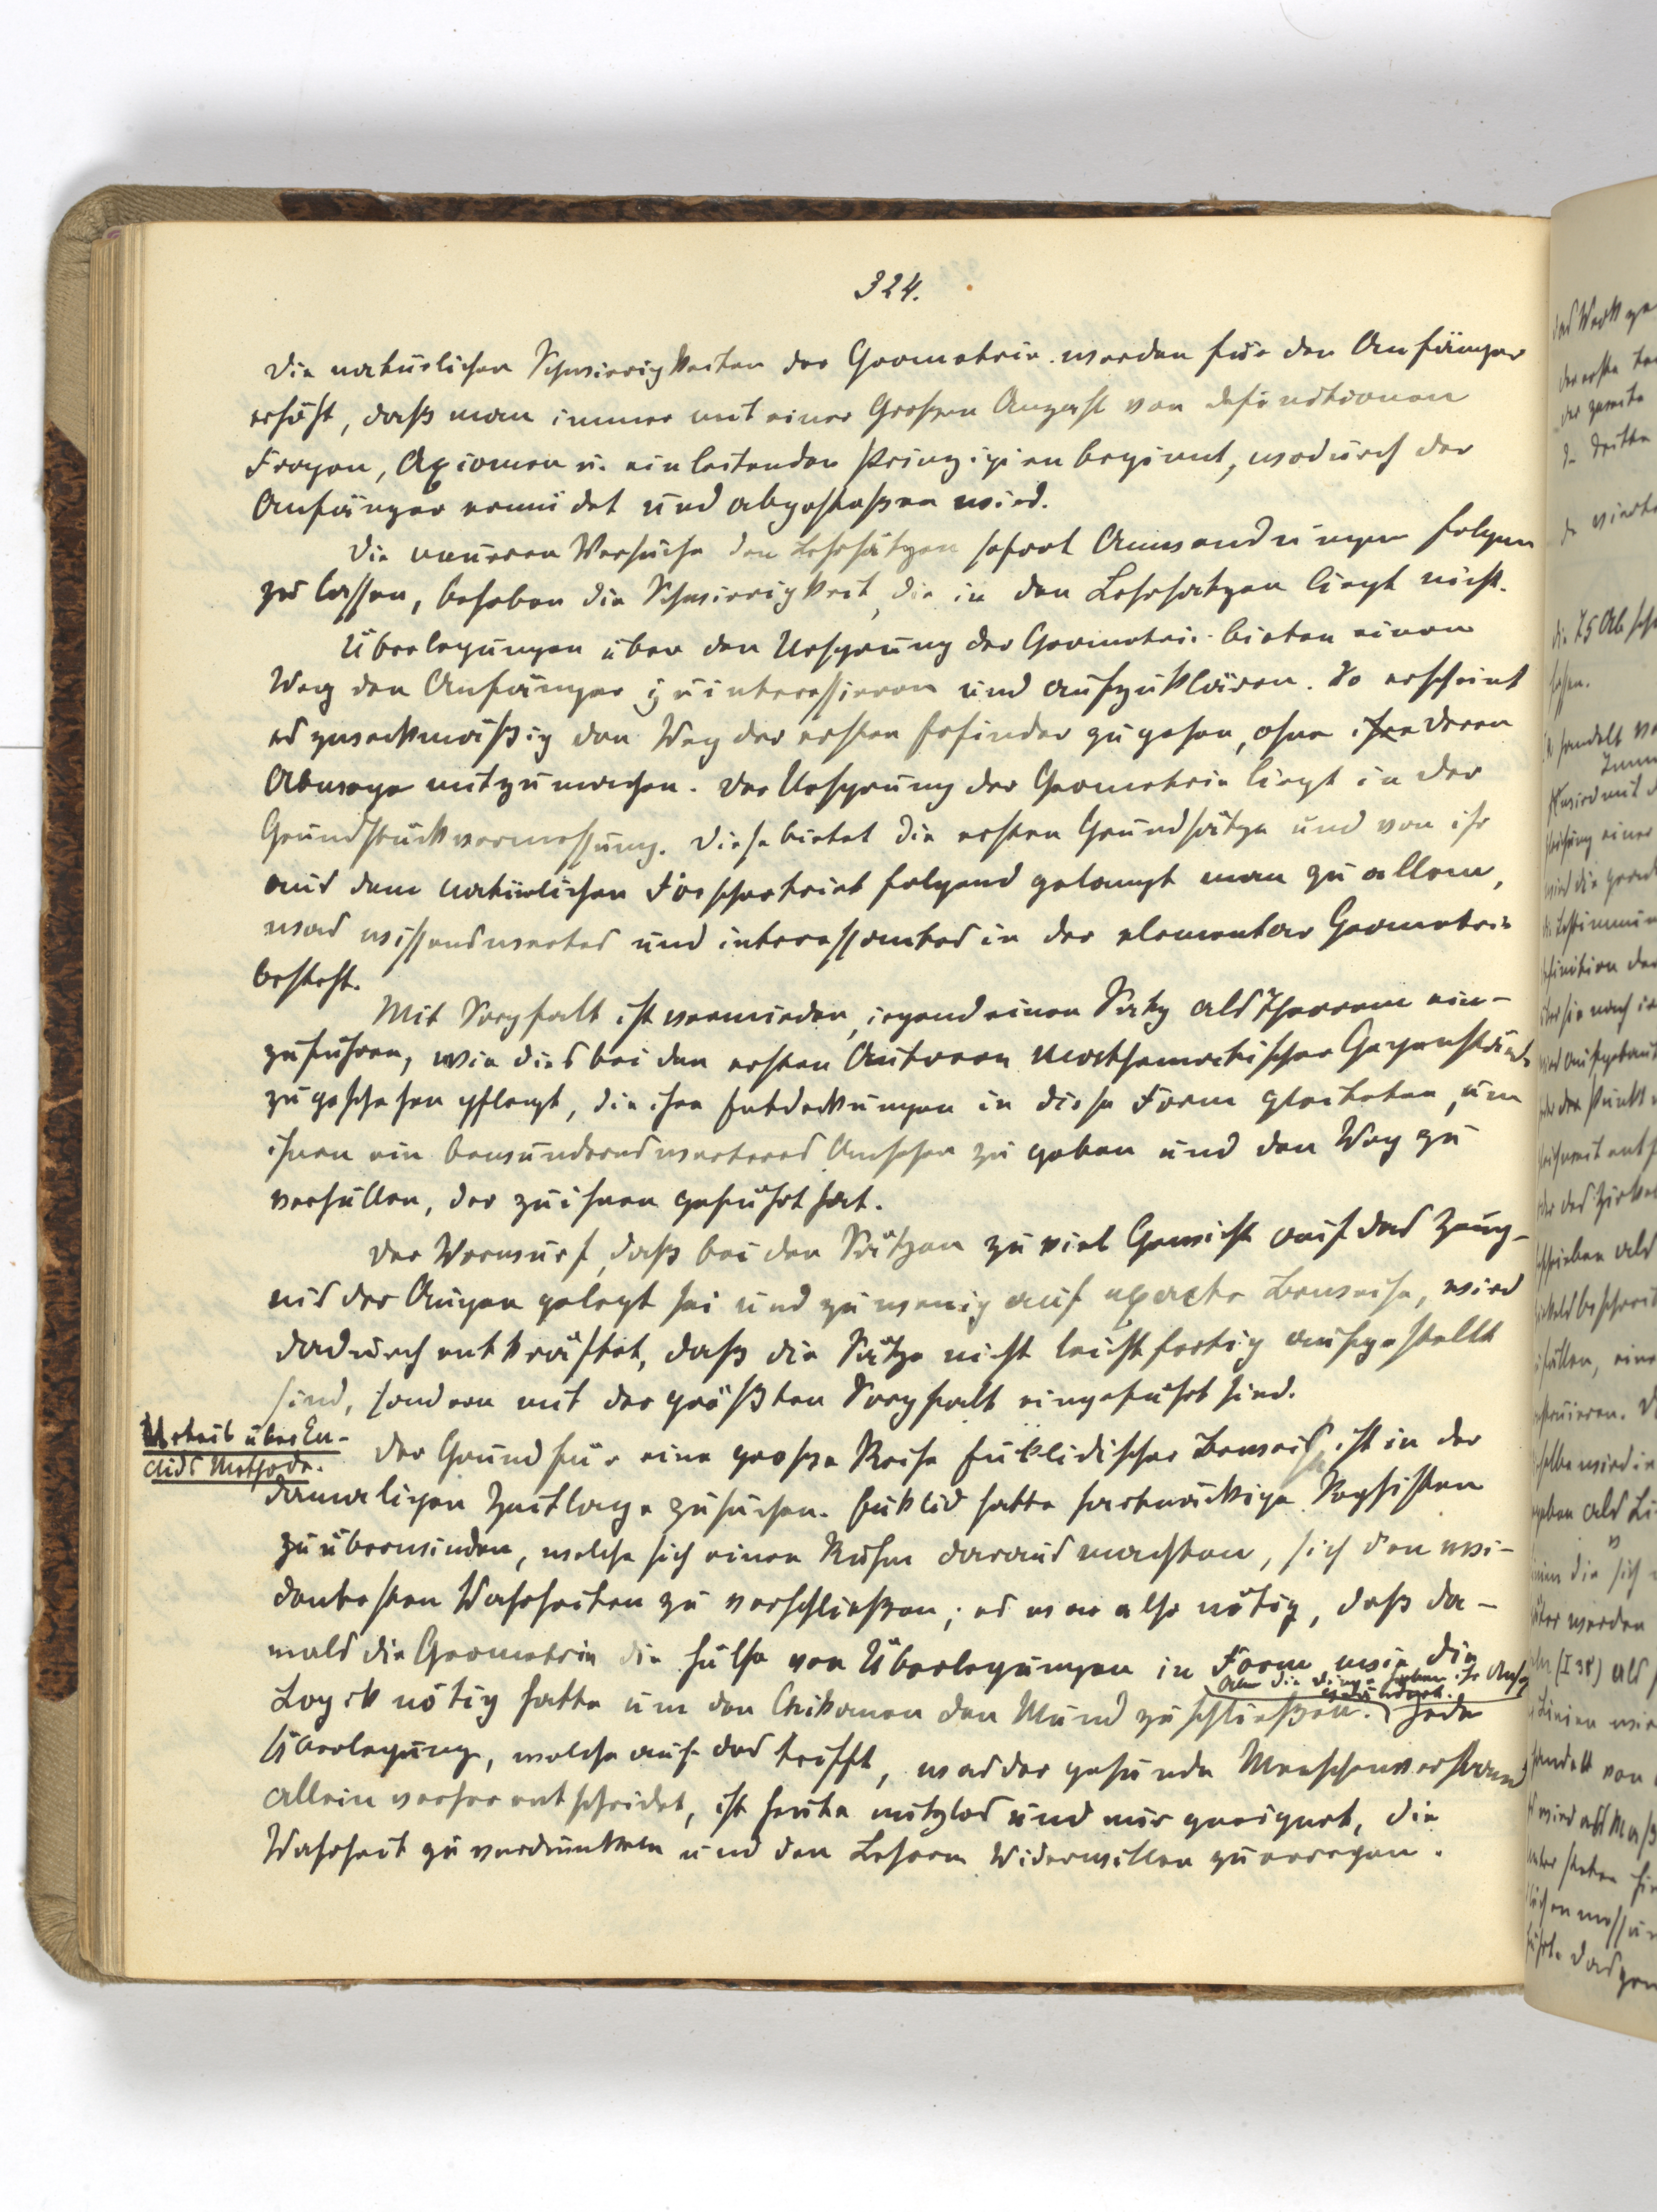 324.
Die natürlichen Schwierigkeiten der Geometrie werden für den Anfänger
erhöht, daß man immer mit einer Großen Anzahl von Definitionen
Fragen, Axiomen u. einleitenden Prinzipien beginnt, wodurch der
Anfänger ermüdet und abgestoßen wird.
Die neueren Versuche den Lehrsätzen sofort Anwendungen folgen
zu lassen, beheben die Schwierigkeit, die in den Lehrsätzen liegt nicht.
Überlegungen über den Ursprung der Geometrie bieten einen
Weg den Anfänger zu interessieren und aufzuklären. So erscheint
es zweckmäßig den Weg der ersten Erfinder zu gehen, ohne ihre deren
Abwege mitzumachen. Der Ursprung der Geometrie liegt in der
Grundstückvermessung. Diese bietet die ersten Grundsätze und von ihr
aus dem natürlichen Forschertrieb folgend gelangt man zu allem,
was wissenswertes und interessantes in der elementar Geometrie
besteht.
Mit Sorgfalt ist vermieden, irgend einen Satz als Theorem ein-
zuführen, wie dies bei den ersten Autoren mathematischer Gegenstände
zu geschehen pflegt, die ihre Entdeckungen in diese Form kleideten, um
ihnen ein bewundernswerteres Ansehen zu geben und den Weg zu
verhüllen, der zu ihnen geführt hat.
Der Vorwurf, daß bei den Sätzen zu viel Gewicht auf das Zeug-
nis der Augen gelegt sei und zu wenig auf exacte Beweise, wird
dadurch entkräftet, daß die Sätze nicht leichtfertig aufgestellt
sind, sondern mit der größten Sorgfalt eingeführt sind.
Urteil über Eu-
clids Methode.
Der Grund für eine grosse Reihe Euklidischer Beweise ist in der
damaligen Zeitlage zu suchen. Euklid hatte hartnäckige Sophisten
zu überwinden, welche sich einen Ruhm daraus machten, sich den evi-
dentesten Wahrheiten zu verschließen; es war also nötig, daß da-
mals die Geometrie die Hülfe von Überlegungen in Form wie die
Logik nötig hatte um den Chikanen den Mund zu schließen. Jede
Aber die Dinge haben ihr Ansehen
geändert.
Überlegung, welche auf das trifft, was der gesunde Menschenverstand
allein vorher entscheidet, ist heute nutzlos und nur geeignet, die
Wahrheit zu verdunkeln und den Lesern Widerwillen zu erregen.